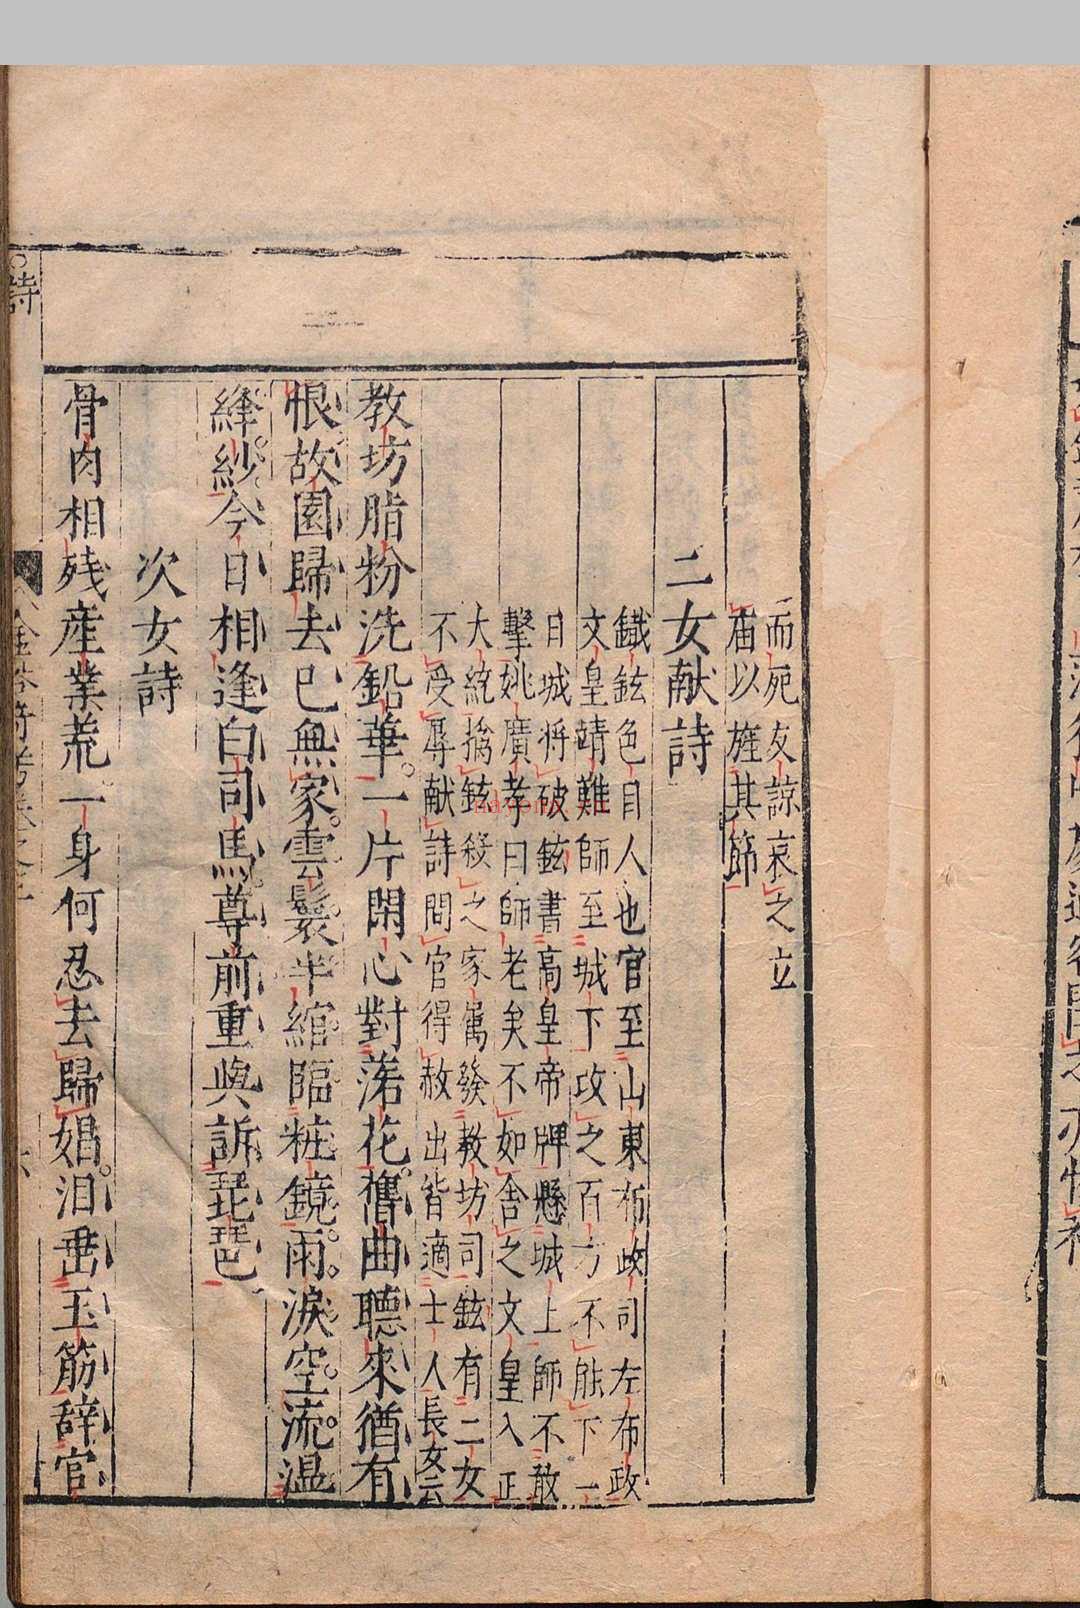 而宛友諒哀之立
庙以旌其節
二女献詩
鐵鉉色目人也官至山東布政司左布政
文皇靖難師至城下攻之百方不能下一
日城将破鉉書高皇帝牌懸城上師不敢
擊姚廣孝曰師老矣不如舍之文皇入正
大統擒鉉殺之家属發教坊司鉉有二女
不受辱献詩問官得赦出皆適士人長女云
教坊脂粉洗鉛華一片閑心對落花舊曲聽來猶有
恨故園歸去已無家雲鬟半綰臨粧鏡雨淚空流濕
絳紗今日相逢白司馬尊前重與訴琵琶
次女詩
骨肉相残産業荒一身何忍去歸娼泪垂玉筋辞官
詩